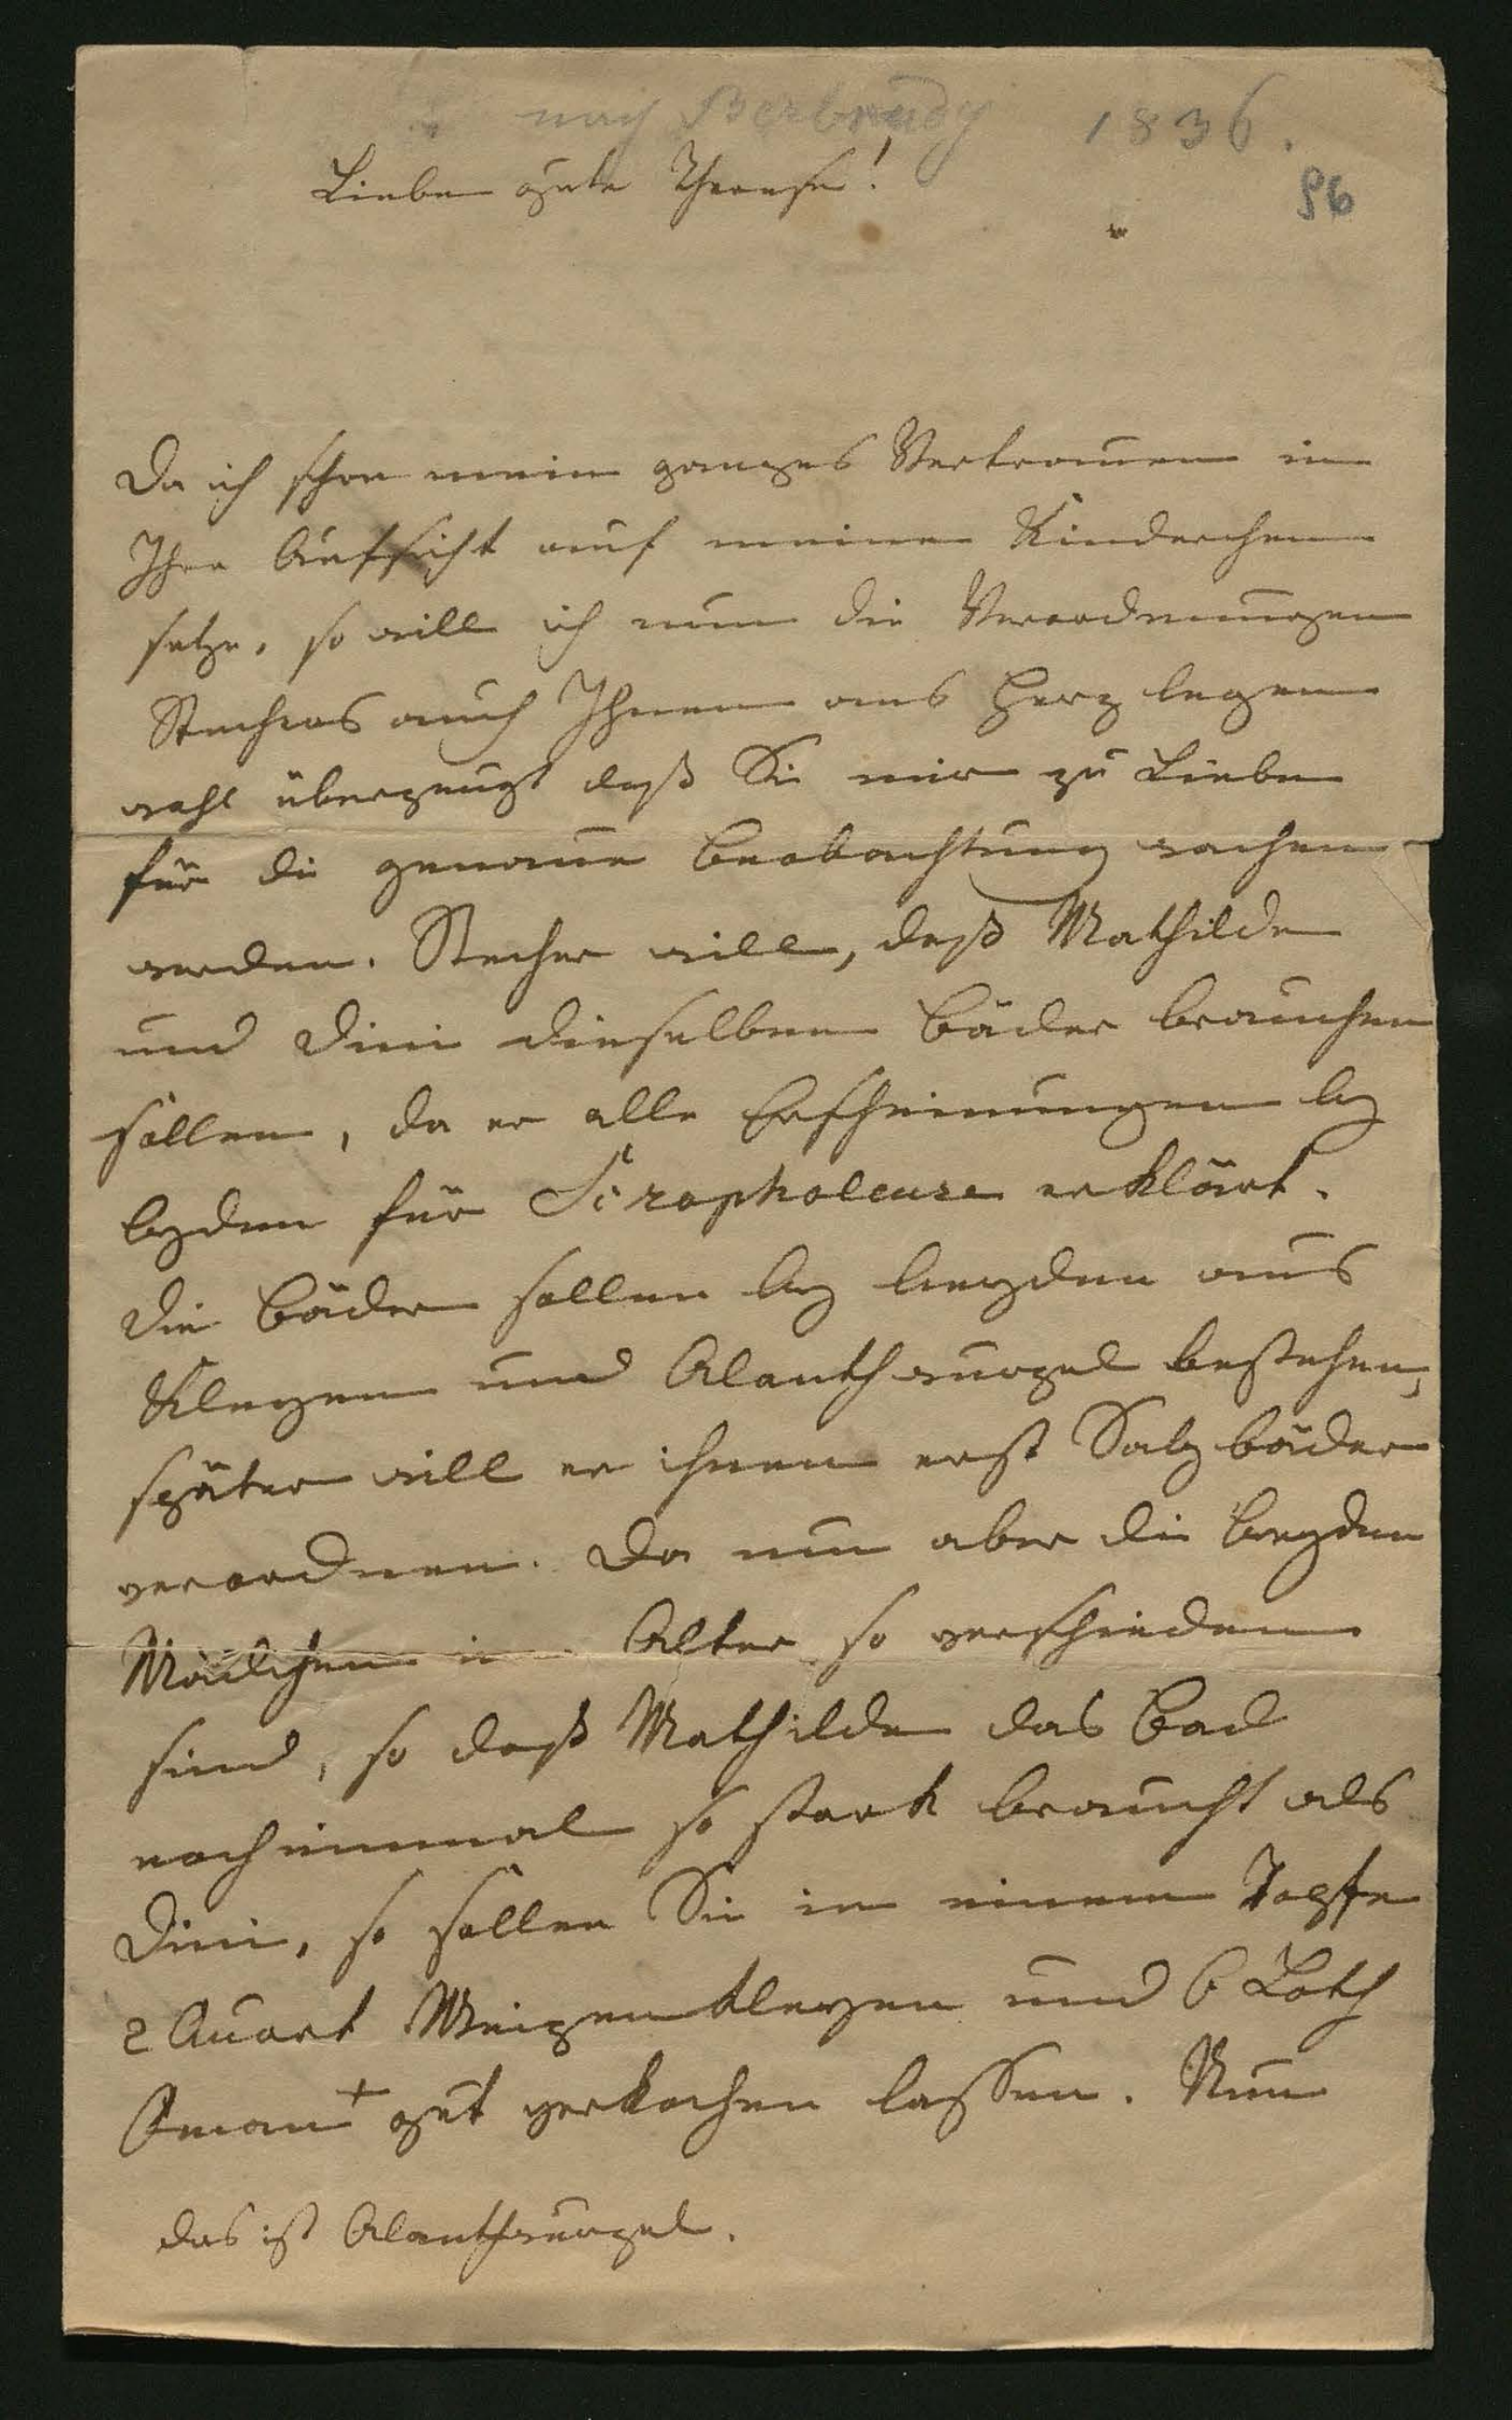 nach 1836.
Liebe gute Therese!
96
Da ich schon mein ganzes Vertrauen in
Ihre Aufsicht auf meine Kinderchen
setze, so will ich nun die Verordnungen
Stechers auch Ihnen ans Herz legen
wohl überzeugt daß Sie mir zu Liebe
für die genaue Beobachtung wachen
werden. Stecher will, daß Mathilde
und Dini dieselben Bäder brauchen
sollen, da er alle Erscheinungen bey
beyden für Scropholeuse erklärt.
Die Bäder sollen bey beyden aus
Kleyen und Alanthwurzel bestehen,
später will er ihnen erst Salzbäder
verordnen. Da nun aber die beyden
Mädchen im Alter so verschieden
sind, so daß Mathilde das Bad
noch einmal so stark braucht als
Dini, so sollen Sie in einem Topfe
2 Quart Weizenkleyen und 6 Loth
+ gut verkochen lassen. Nun
das ist Alanthwurzel.